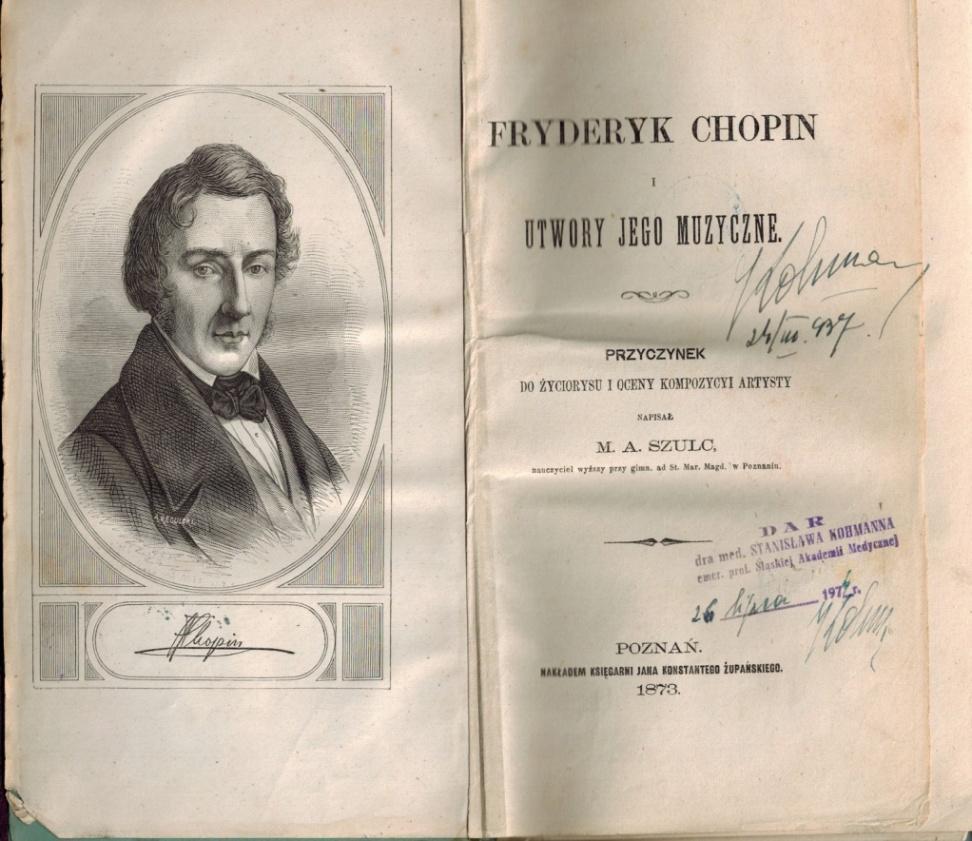 A. REGULSKI.
FChopin
FRYDERYK CHOPIN
I
UTWORY JEGO MUZYCZNE.
Kohman
24/III. 937.
PRZYCZYNEK
DO ŻYCIORYSU I OCENY KOMPOZYCYI ARTYSTY
NAPISAŁ
M. A. SZULC,
nauczyciel wyższy przy gimn. ad St. Mar. Magd. w Poznaniu.
DAR
dra med. STANISŁAWA KOHMANNA
emer. prof. Śląskiej Akademii Medycznej
26 lipca 197 r.
POZNAŃ.
NAKŁADEM KSIĘGARNI JANA KONSTANTEGO ŻUPAŃSKIEGO.
1873.